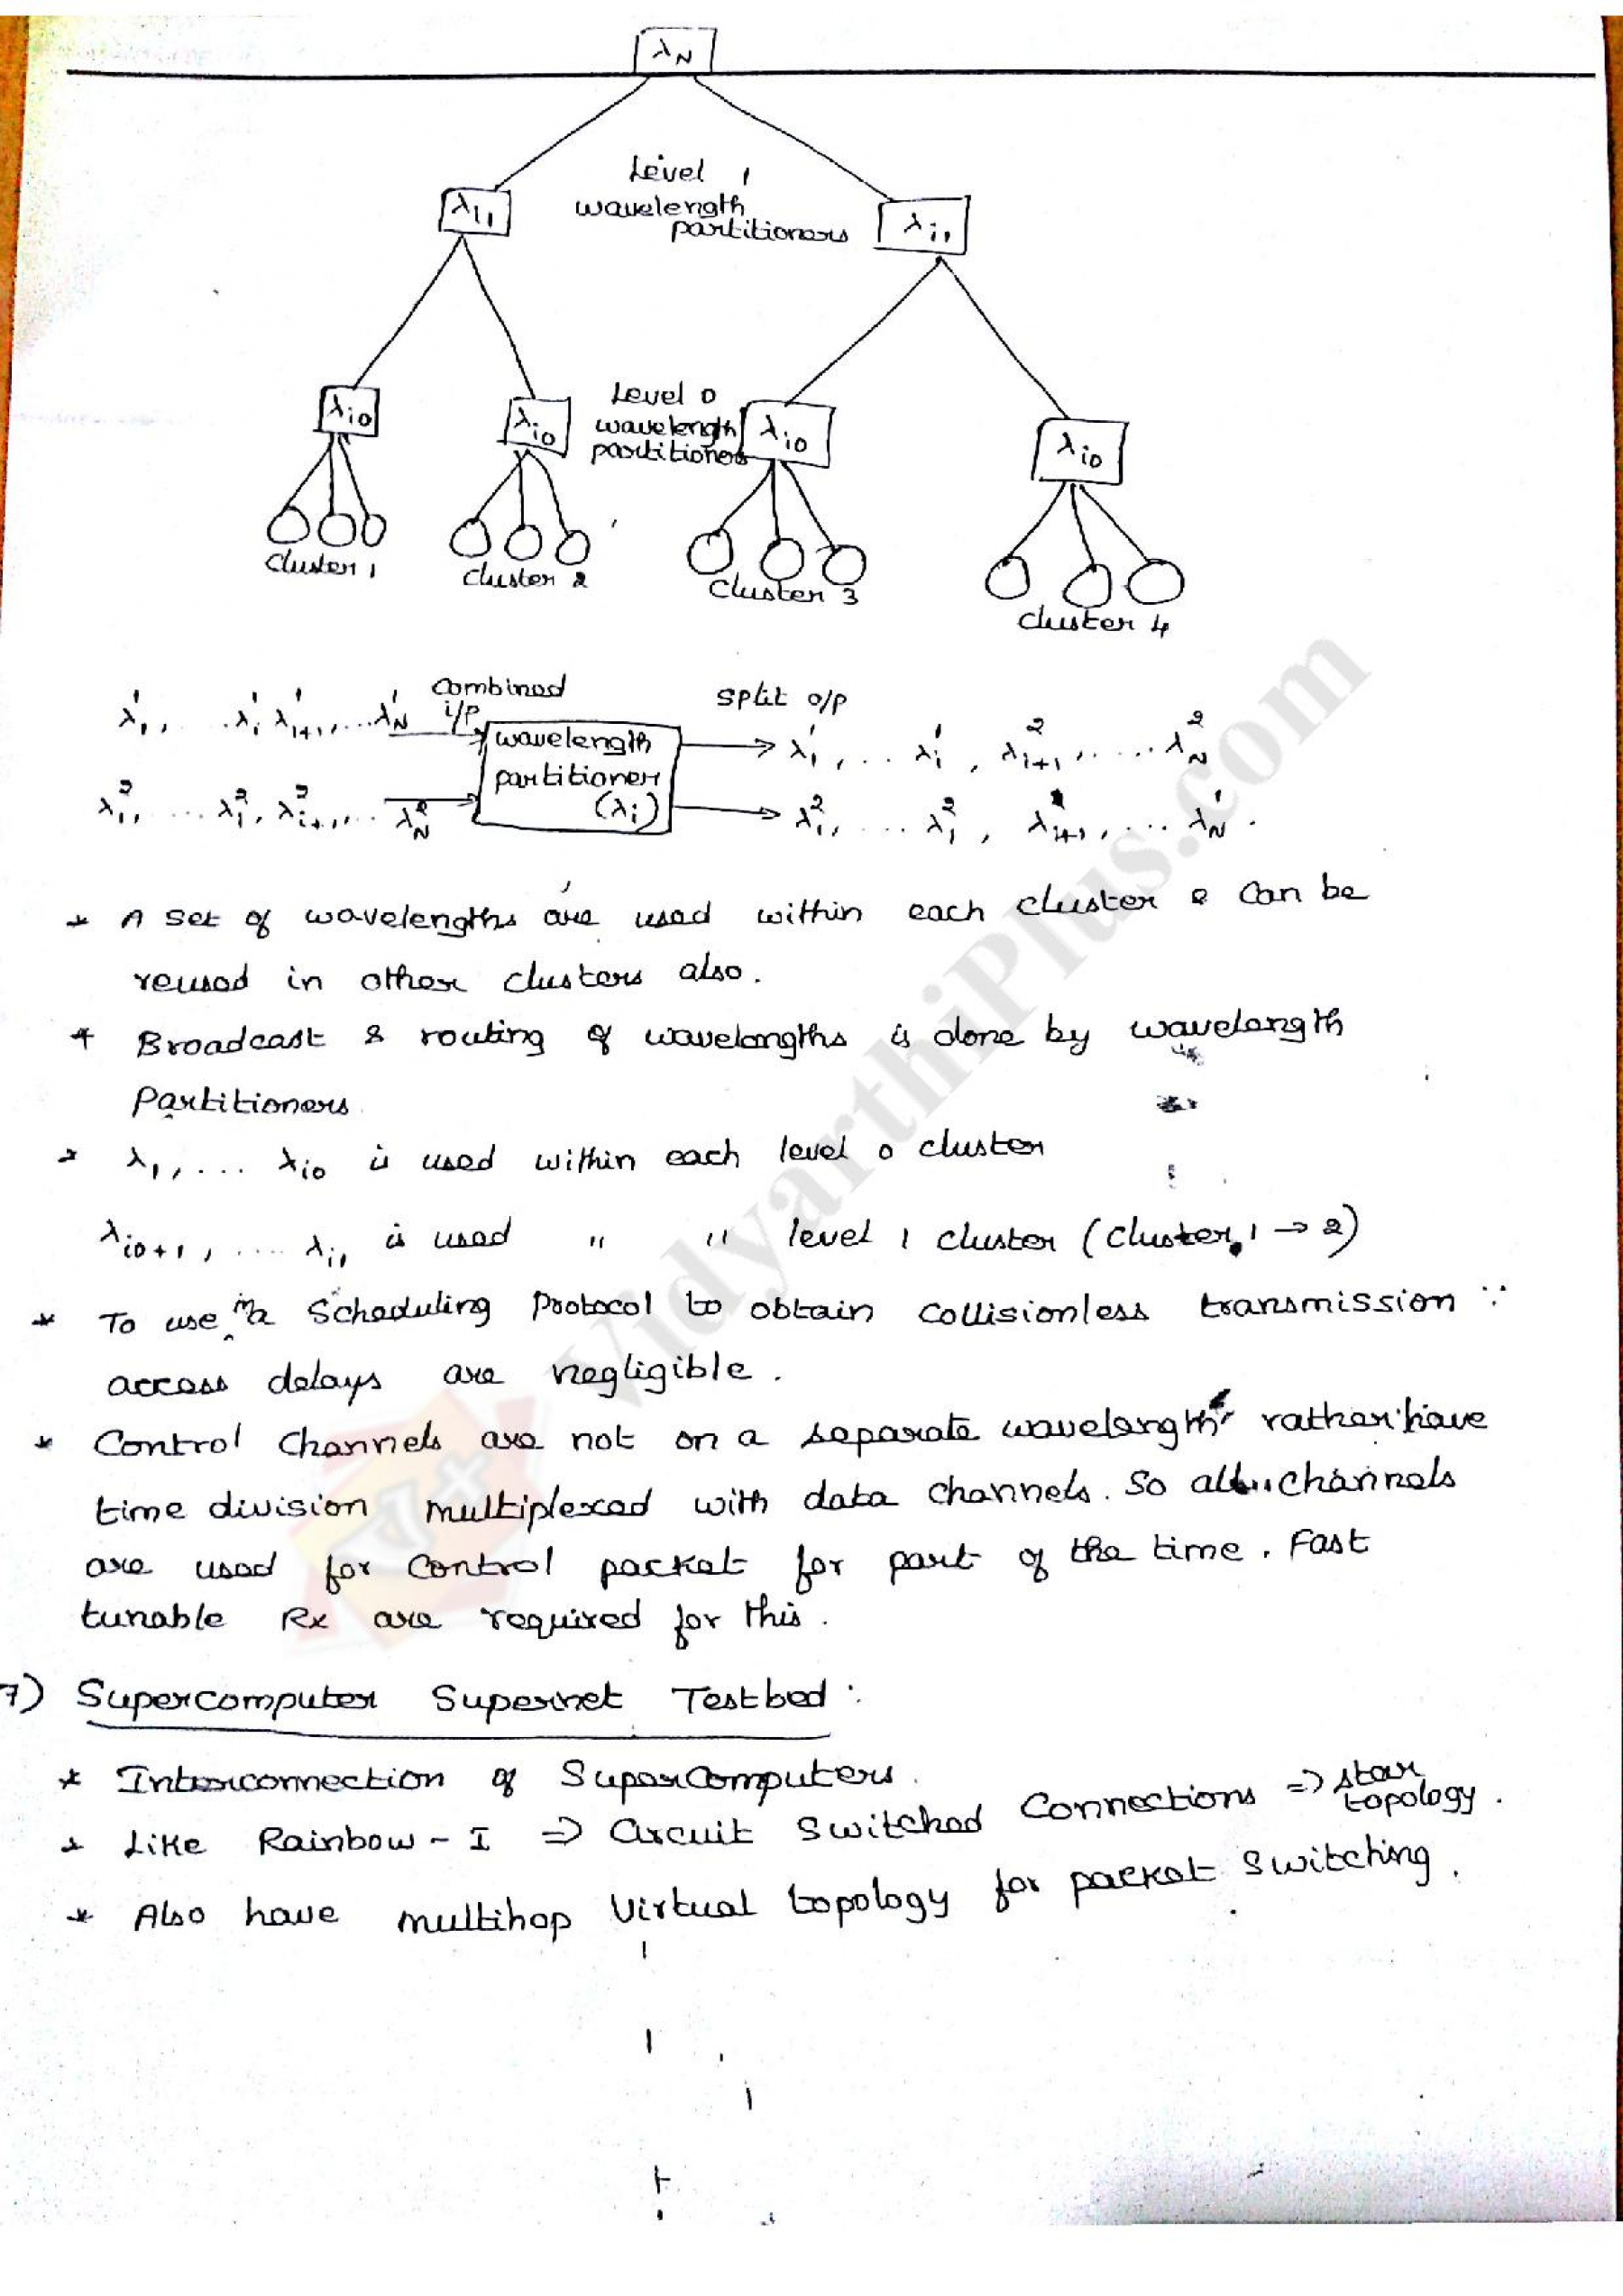 λN
Level 1
wavelength
partitioners
λi1
λi1
Level 0
wavelength
partitioners
λi0
λi0
λi0
λi0
Cluster 1
Cluster 2
Cluster 3
Cluster 4
Combined
i/p
Split o/p
λ¹1, ... λ¹i λ¹i+1, ... λ¹N
wavelength
partitioner
(λi)
λ¹1, ... λ¹i, λ²i+1, .... λ²N
λ²1, ... λ²i, λ²i+1, ... λ²N
λ²1, ... λ²i, λ¹i+1, ... λ¹N.
* A set of wavelengths are used within each cluster & can be
reused in other clusters also.
* Broadcast & routing of wavelengths is done by wavelength
Partitioners
* λ1, ... λi0 is used within each level 0 cluster
λi0+1, .... λi1 is used " " level 1 cluster (cluster 1 → 2)
* To use a Scheduling Protocol to obtain collisionless transmission ∵
access delays are negligible.
* Control channels are not on a separate wavelength rather have
time division multiplexed with data channels. So all channels
are used for control packet for part of the time. Fast
tunable Rx are required for this.
7) Supercomputer Supernet Testbed:
* Interconnection of SuperComputers.
* Like Rainbow-I ⇒ Circuit Switched Connections ⇒ star
topology.
* Also have multihop Virtual topology for packet switching.
VidyarthiPlus.com
V+